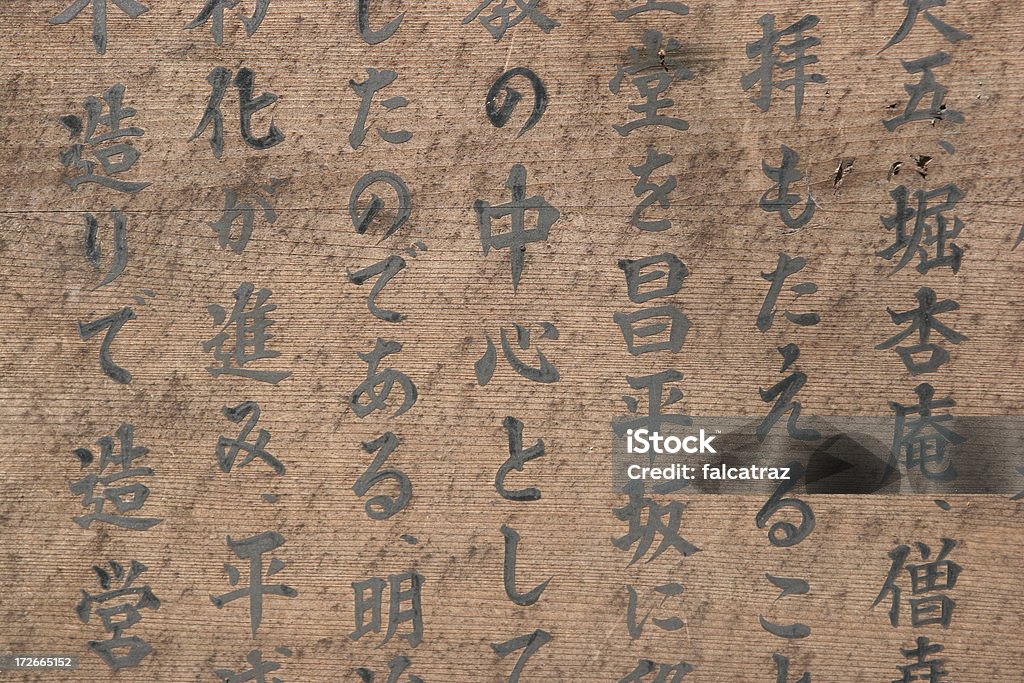 五、堀杏庵、僧
拝もたえるこ
堂を昌平坂に
教の中心として
したのである。明
化が進み、平
造りで造営
iStock
Credit: falcatraz
172665152